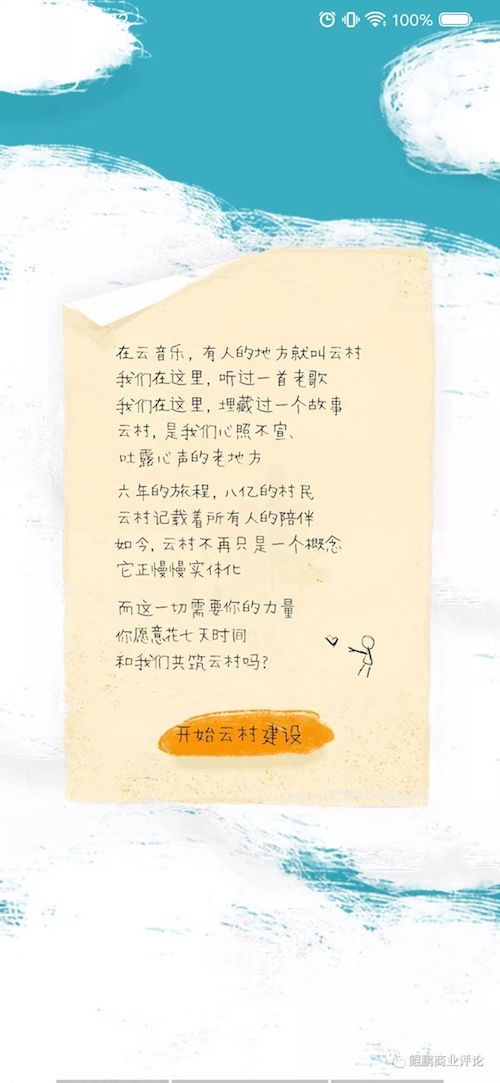 100%
在云音乐，有人的地方就叫云村
我们在这里，听过一首老歌
我们在这里，埋藏过一个故事
云村，是我们心照不宣、
吐露心声的老地方
六年的旅程，八亿的村民
云村记载着所有人的陪伴
如今，云村不再只是一个概念
它正慢慢实体化
而这一切需要你的力量
你愿意花七天时间
和我们共筑云村吗？
开始云村建设
鲲鹏商业评论